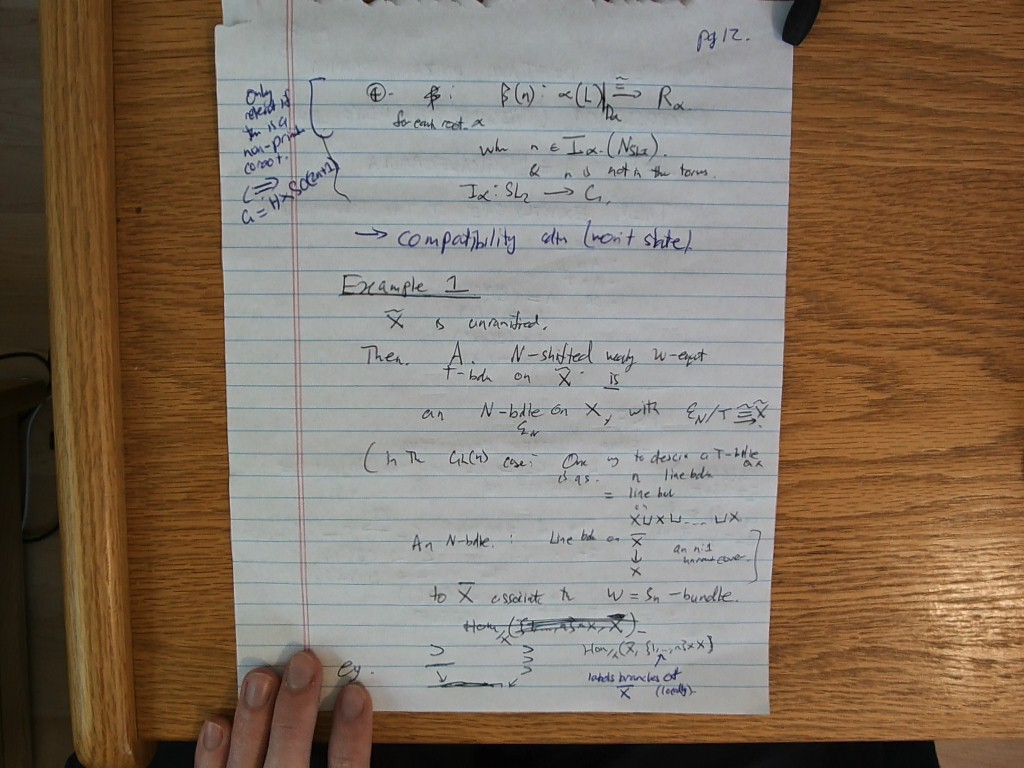 pg 12.
Only
relevant if
there is a
non-prim
coroot.
(⟺
G = H × SO(2n+1)
④. β: β(n): α(L)|_{D_α} ≅→ R_α.
for each root α
when n ∈ I_α.(N_{SL2}).
& n is not in the torus.
I_α: SL_2 → G,
→ compatibility cdtn (won't state)
Example 1
X̃ is unramified.
Then. A. N-shifted weakly W-equt
T-bdle on X̃. is
an N-bdle on X, with ℰ_N/T ≅→ X̃.
ℰ_N
(In the GL(n) case: One way to describe a T-bdle on X
is as. n line bdles
= line bdl
on
X⊔X⊔....⊔X
An N-bdle. : Line bdle on X̄
↓
X
an n:1
unram cover.
to X̄ associate the W = S_n -bundle.
Hom_{/X}(
Hom_{/X}(X̄, {1,...,n}×X)
eg.
labels branches of
X̄ (locally).